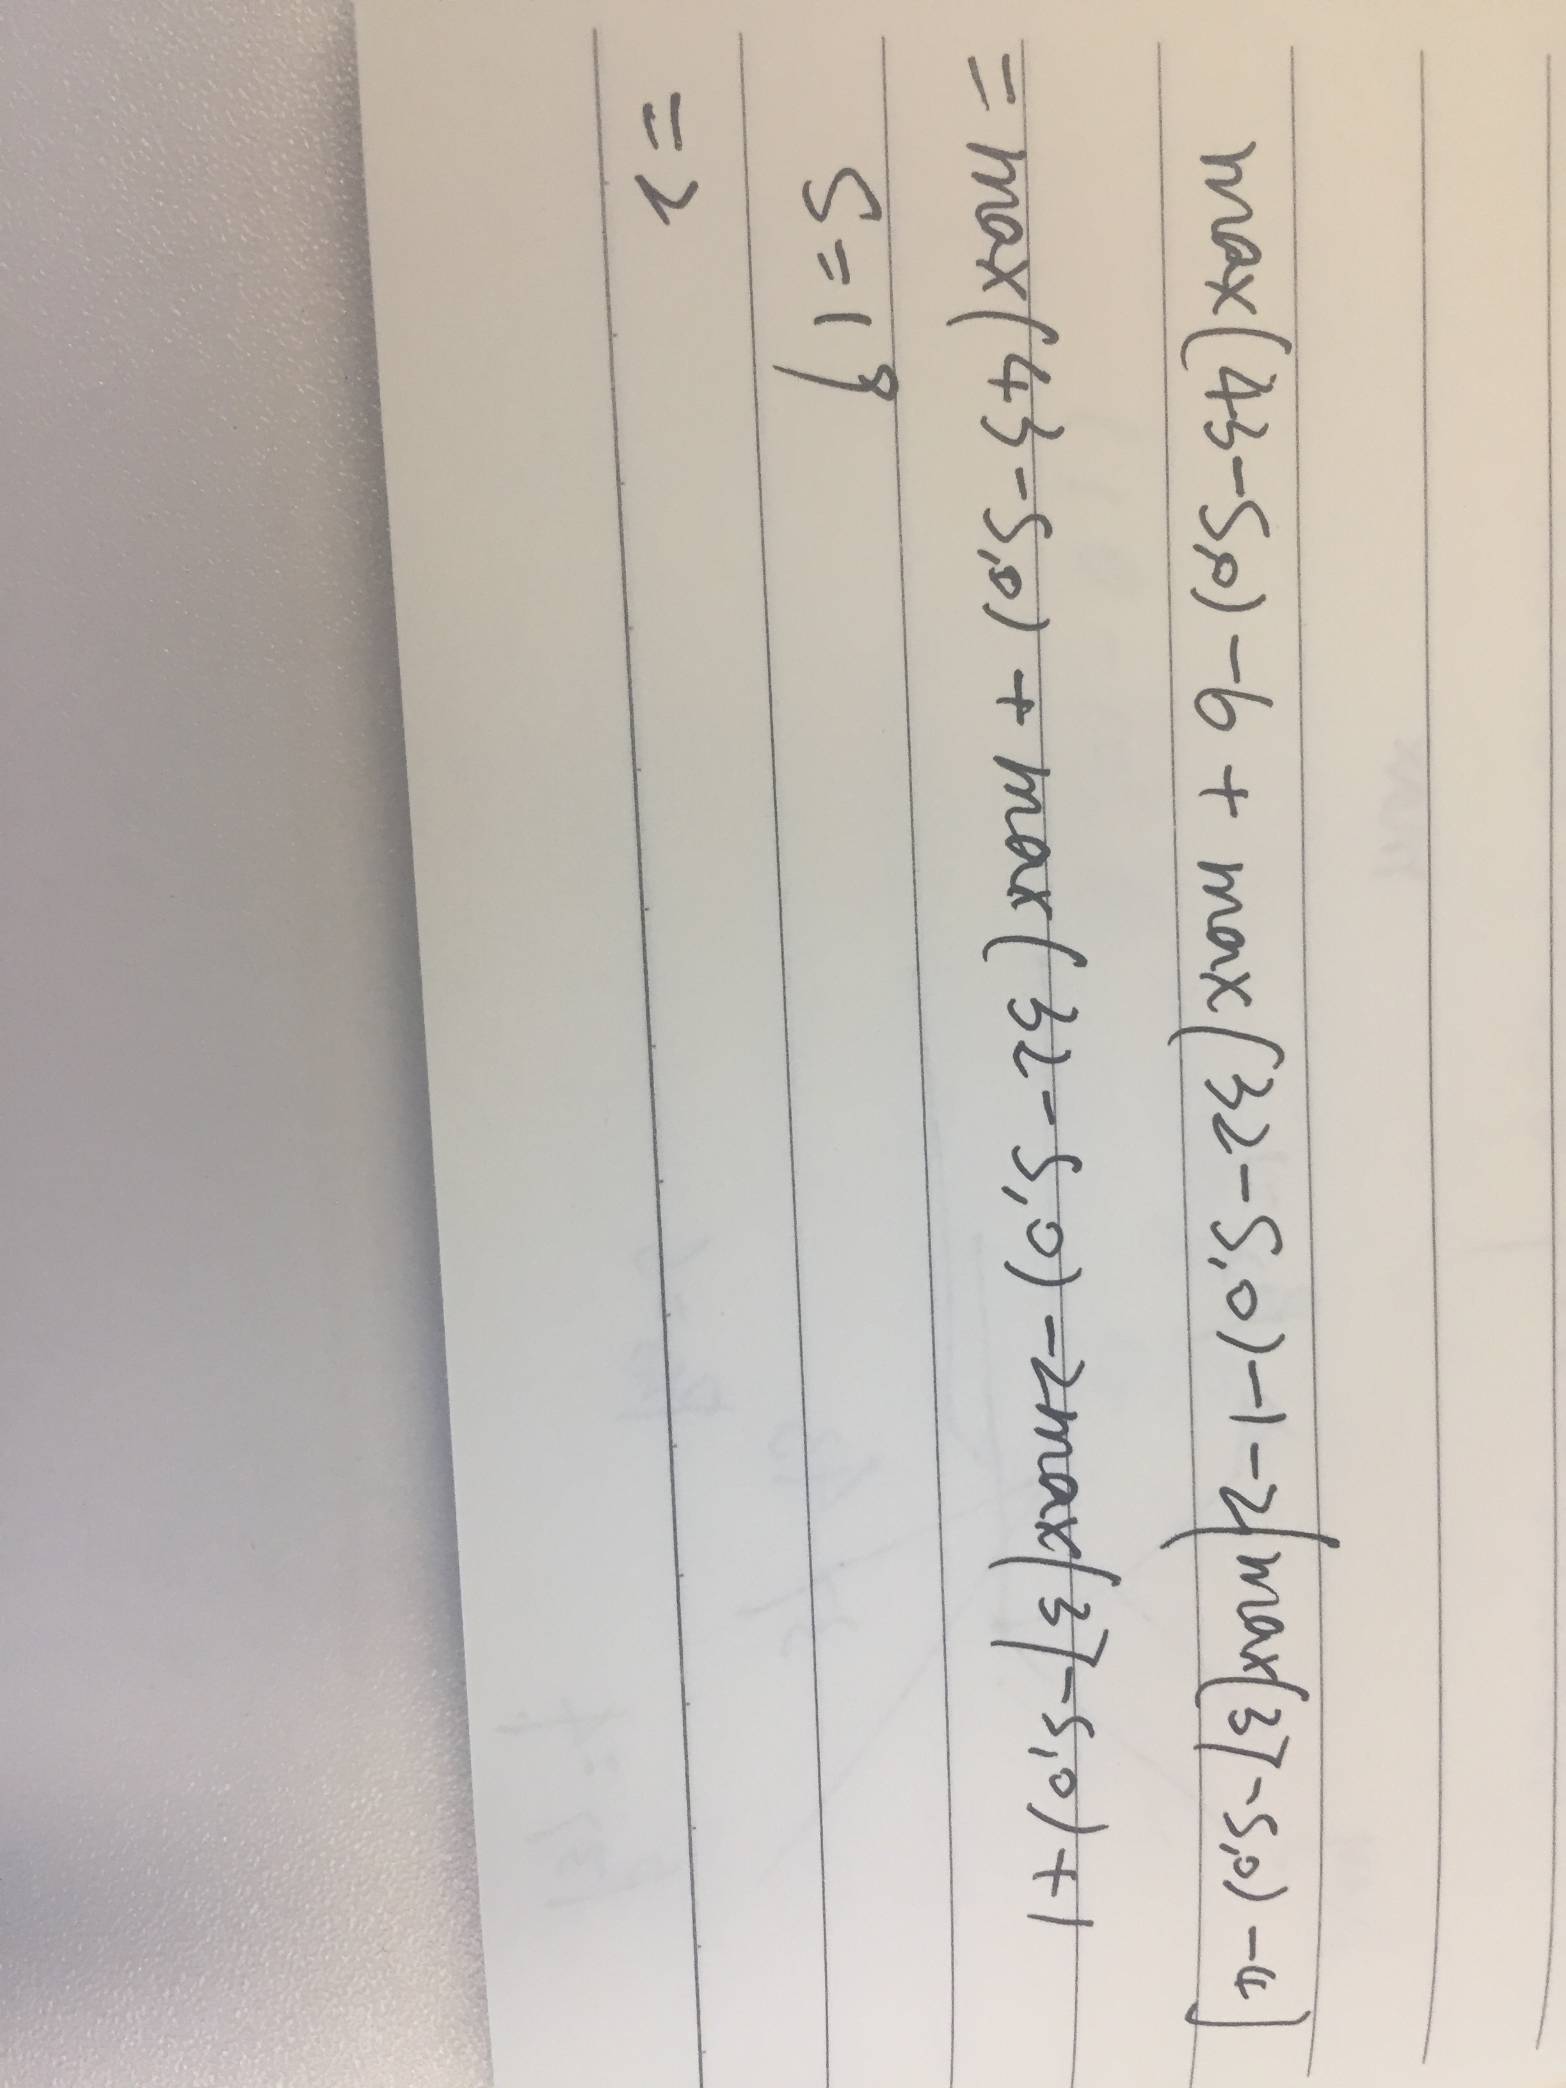 max(43-S,0)-6+max(32-S,0)-1-2[max(37-S,0)-4]
=max(43-S,0)+max(32-S,0)-2max(37-S,0)+1
S=18
=2